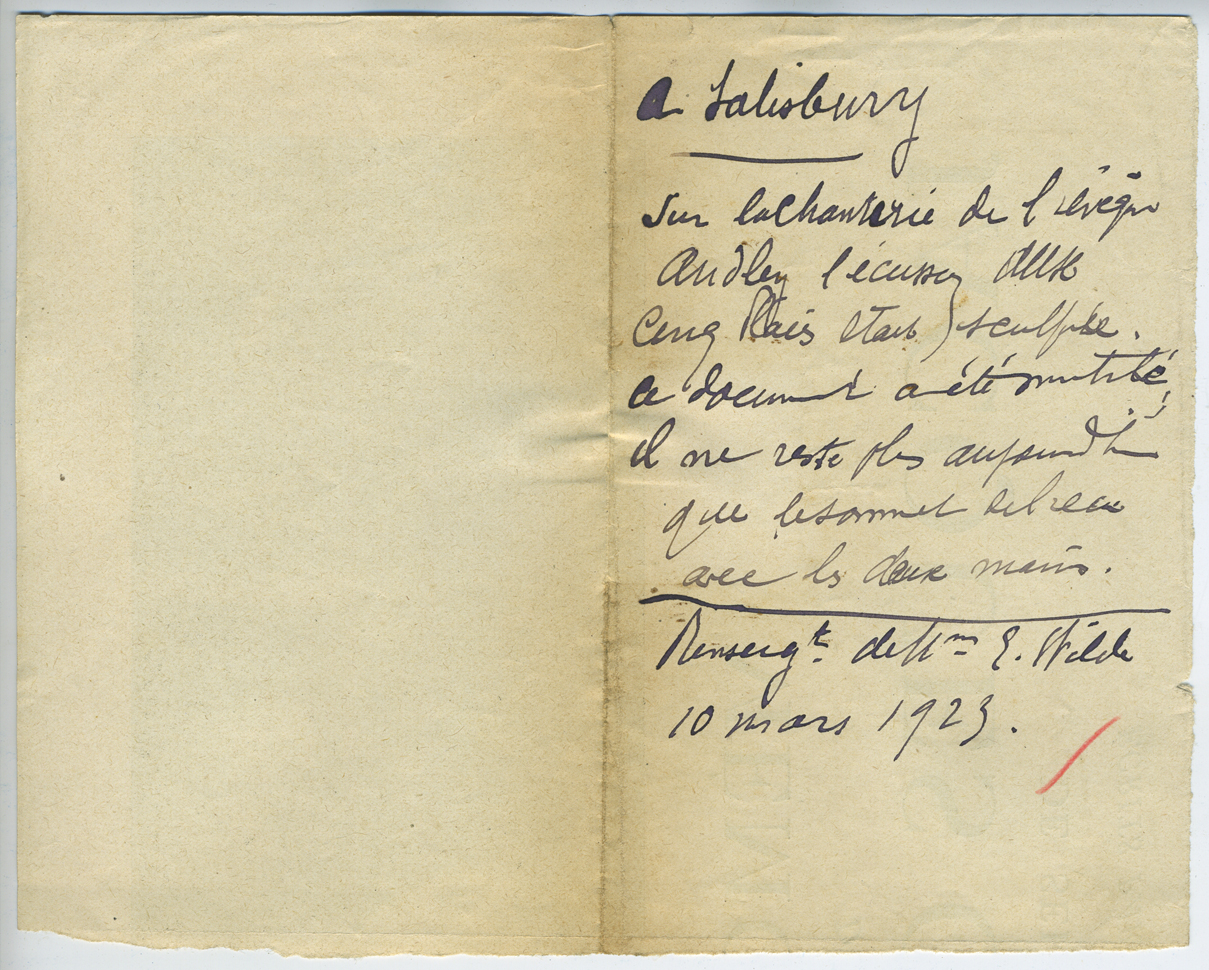 a Salisbury
Sur la chanterie de l'évêque
Audley l'écusson aux
Cinq Plaies était sculptée.
ce document a été mutilé,
il ne reste plus aujourd'hui
que le sommet
avec les deux mains.
Renseigt. de Mme E. Wilde
10 mars 1923.